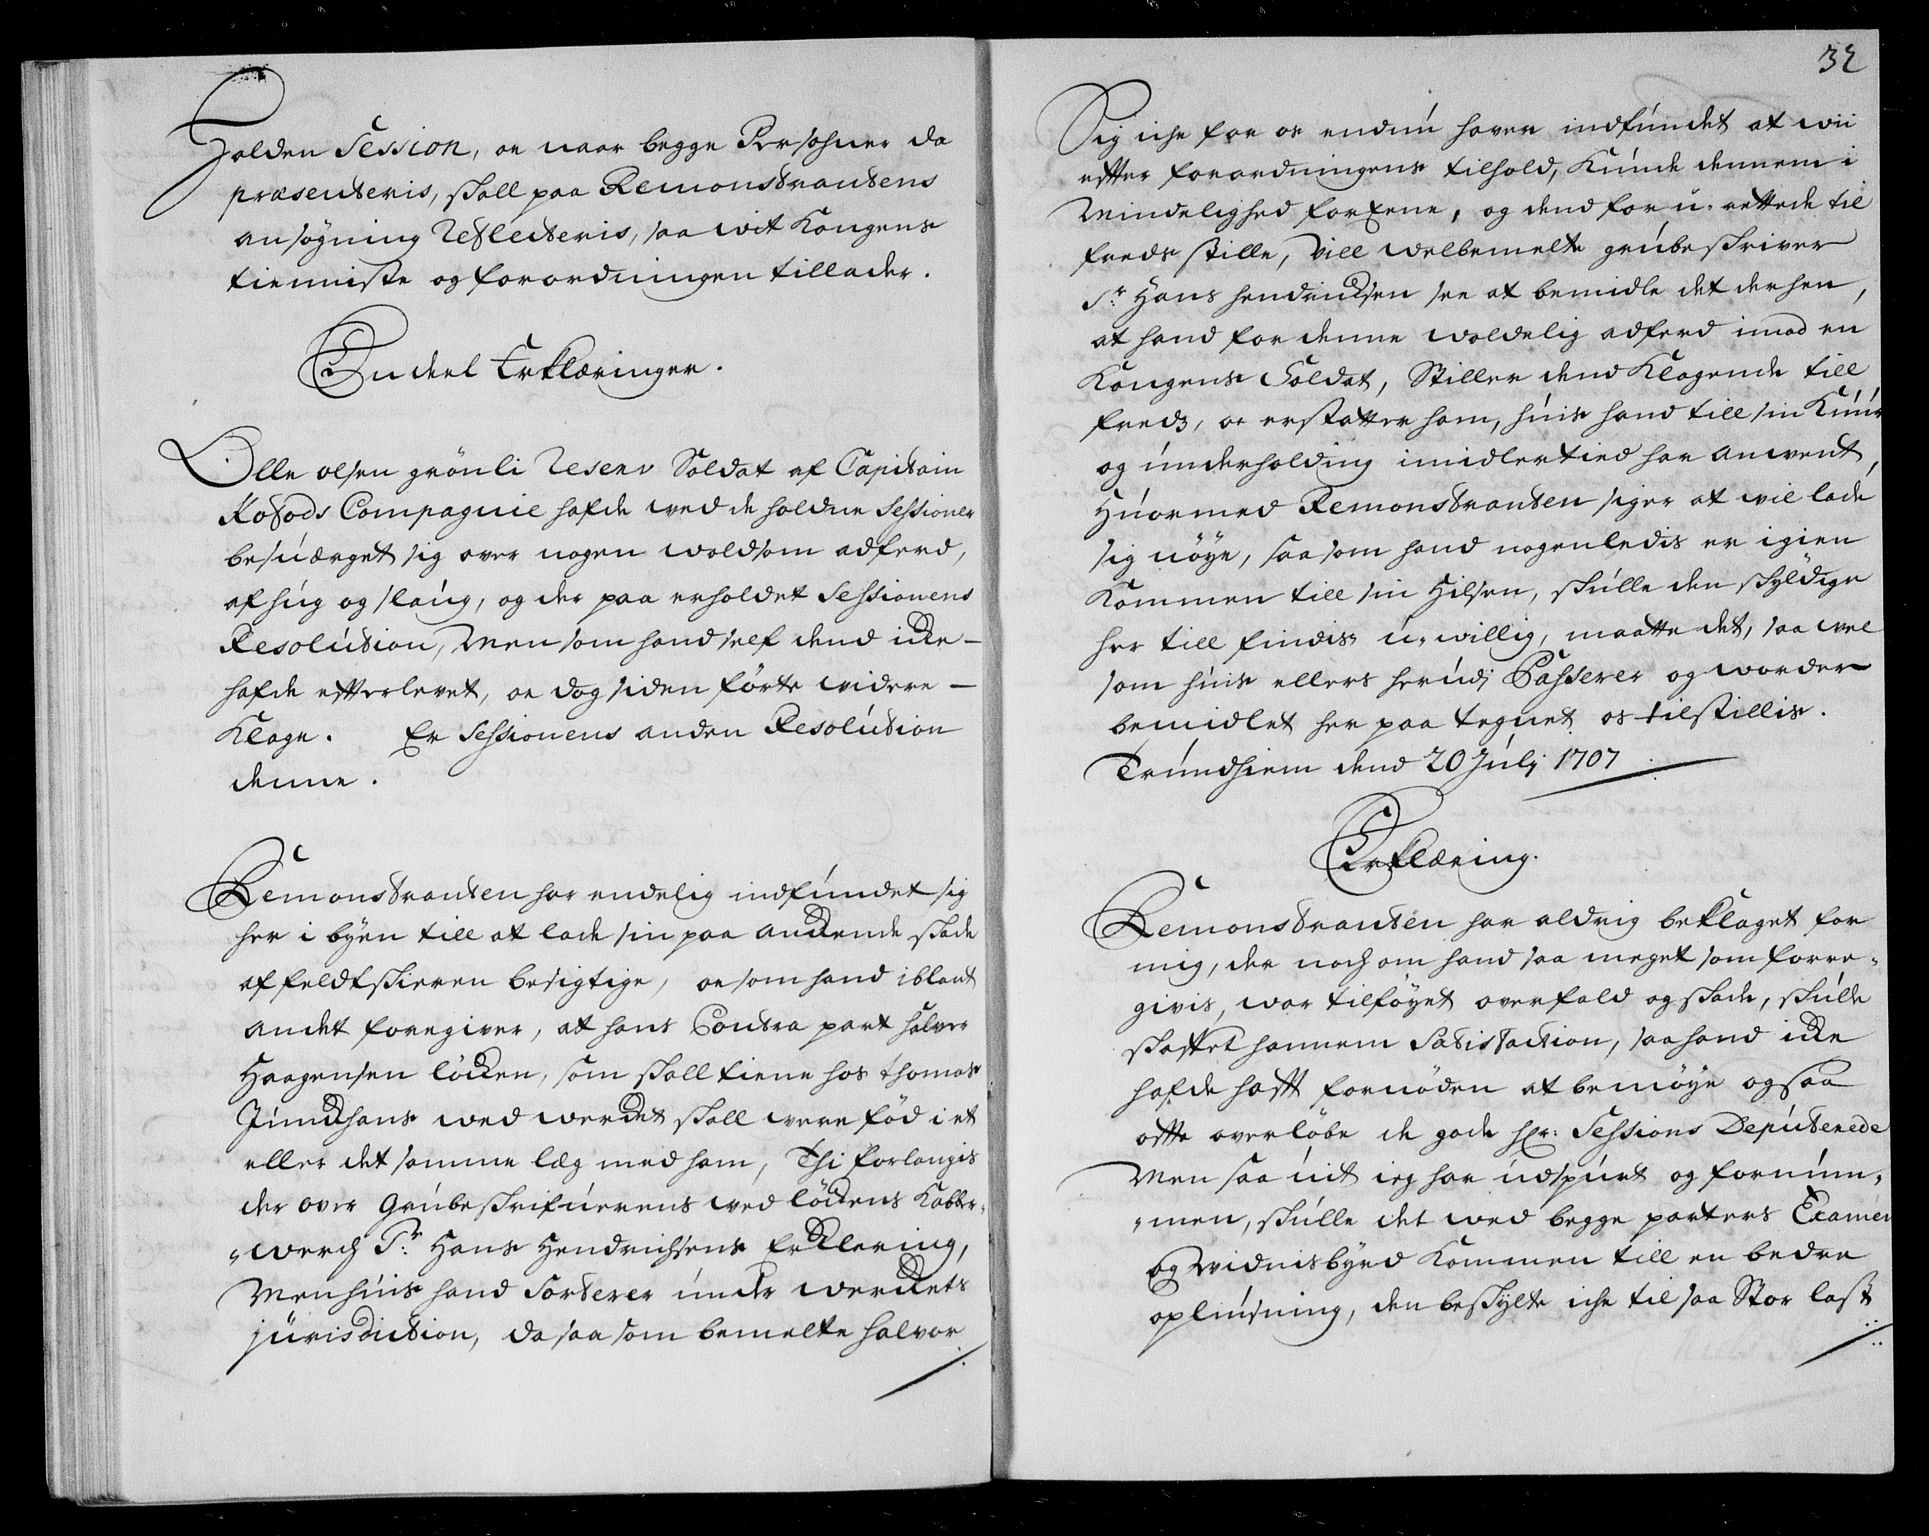 holden Session, oc naar begge Persohner da
præsenteris, skall paa Remonstrantens
ansøgning Reflecteris, saa vit Kongens
tienniste og forordningen tillader.
En deel Erklæringer.
Olle olsen grönli Reserv Soldat af Capitain
Kofods Compagnie hafde wed de holdne Sessioner
besuærget sig over nogen woldsom adferd,
af hug og slaug, og der paa erholdet Sessionens
Resolution, Men som hand self dend icke
hafde etterlevet, oc dog siden förte widere
Klage. Er Sessionens anden Resolution
denne.
Remonstranten har endelig indfundet sig
her i byen till at lade sin paa anckende skade
af feldtskieren besigtige, oc som hand iblant
andet foregiver, at hans Contra part halver
Haagensen löcken, som skall tiene hos thomas
Junckhans wed wercket skall were fød i et
eller det samme læg med ham, Thi forlangis
der over grubeskrifuerens wed löckens Kobber¬
werch Sr. Hans Hendrichsens Erklering,
Men huis hand Sorterer under werckets
jurisdiction, da saa som bemelte halvor
32
Sig iche for os endnu haver indfundet at wii
etter forordningens tilhold, Kunde dennem i
Mindelighed forEene, og dend for u-rettede til
freds stille, Vill welbemelte grubeskriver
Sr. Hans hendricksen see at bemidle det derhen,
at hand for denne woldelig adferd imod en
Kongens Soldat, Stiller dend Klagende till
freds, oc erstatter ham, huis hand till sin Kuur
og underholding imidlertied har anwent,
Huormed Remonstranten siger at wil lade
sig nöye, saa som hand nogenledis er igien
Kommen till sin Hilsen, skulle den skyldige
her till findis u-willig, maatte det, saa wel
som huis ellers herudj Passerer og worder
bemidlet her paa tegnet os tilstillis.
Trundhiem dend 20 Julj 1707
Erklæring.
Remonstranten har aldrig beklaget for
mig, der noch om hand saa meget som forre¬
givis, war tilföyet overfald og skade, skulde
skaffet hannem Satisfaction, saa hand icke
hafde haft fornöden at bemöye og saa
otte overlöbe de gode Hr: Sessions Deputerede
Men saa uit ieg har udspurt og fornum¬
men, skulle det wed begge parters Examen
og widnisbyrd Kommen till en bedre
opliusning, den beskylte iche til saa Stor last